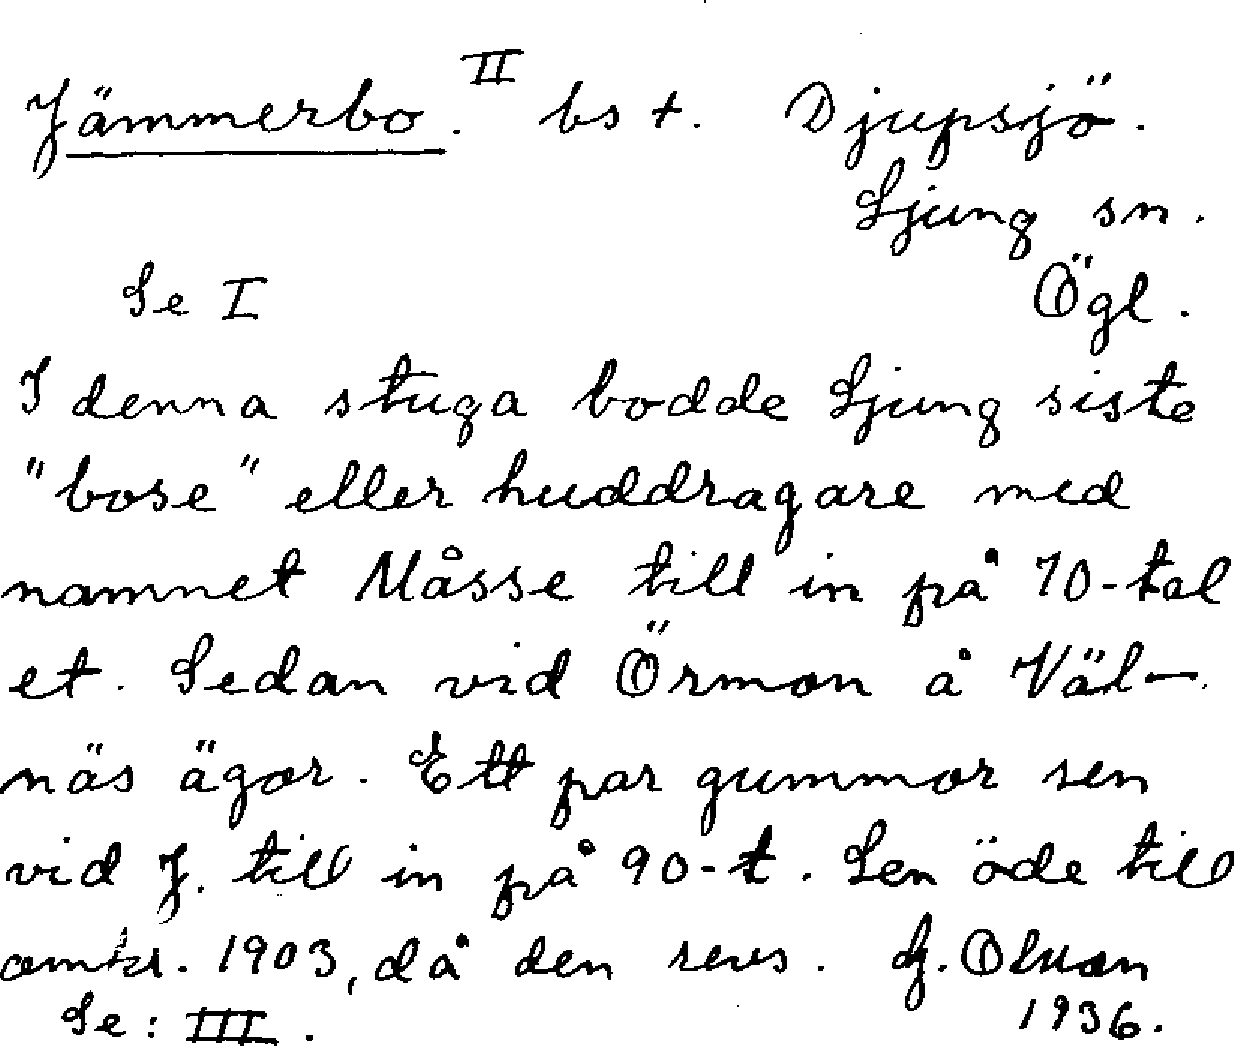 Jämmerbo. II bs t. Djupsjö.
Ljung sn.
Se I Ögl.
I denna stuga bodde Ljung siste
"bose" eller huddragare med
namnet Måsse till in på 70-tal
et. Sedan vid Örmon å Väl-
näs ägor. Ett par gummor sen
vid J. till in på 90-t. Sen öde till
omkr. 1903, då den revs. G.
Se: III. 1936.